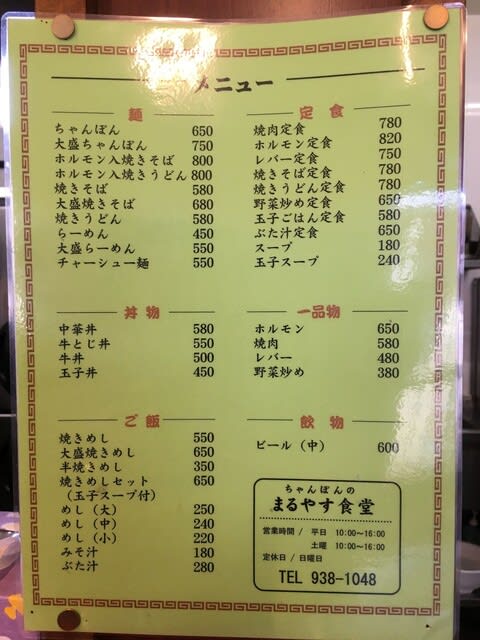 メニュー
麺
ちゃんぽん 650
大盛ちゃんぽん 750
ホルモン入焼きそば 800
ホルモン入焼きうどん 800
焼きそば 580
大盛焼きそば 680
焼きうどん 580
らーめん 450
大盛らーめん 550
チャーシュー麺 550
定食
焼肉定食 780
ホルモン定食 820
レバー定食 750
焼きそば定食 780
焼きうどん定食 780
野菜炒め定食 650
玉子ごはん定食 580
ぶた汁定食 650
スープ 180
玉子スープ 240
丼物
中華丼 580
牛とじ丼 550
牛丼 500
玉子丼 450
一品物
ホルモン 650
焼肉 580
レバー 480
野菜炒め 380
ご飯
焼きめし 550
大盛焼きめし 650
半焼きめし 350
焼きめしセット 650
(玉子スープ付)
めし(大) 250
めし(中) 240
めし(小) 220
みそ汁 180
ぶた汁 280
飲物
ビール(中) 600
ちゃんぽんの
まるやす食堂
営業時間 / 平日 10:00〜16:00
土曜 10:00〜16:00
定休日 / 日曜日
TEL 938-1048